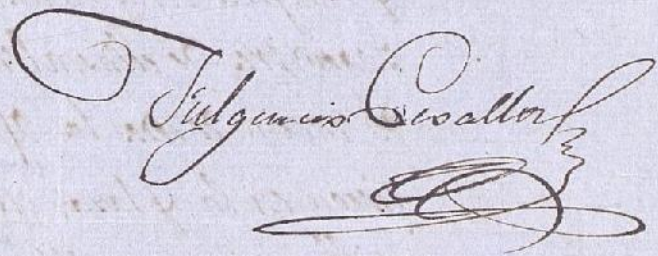 Fulgencio Cevallos